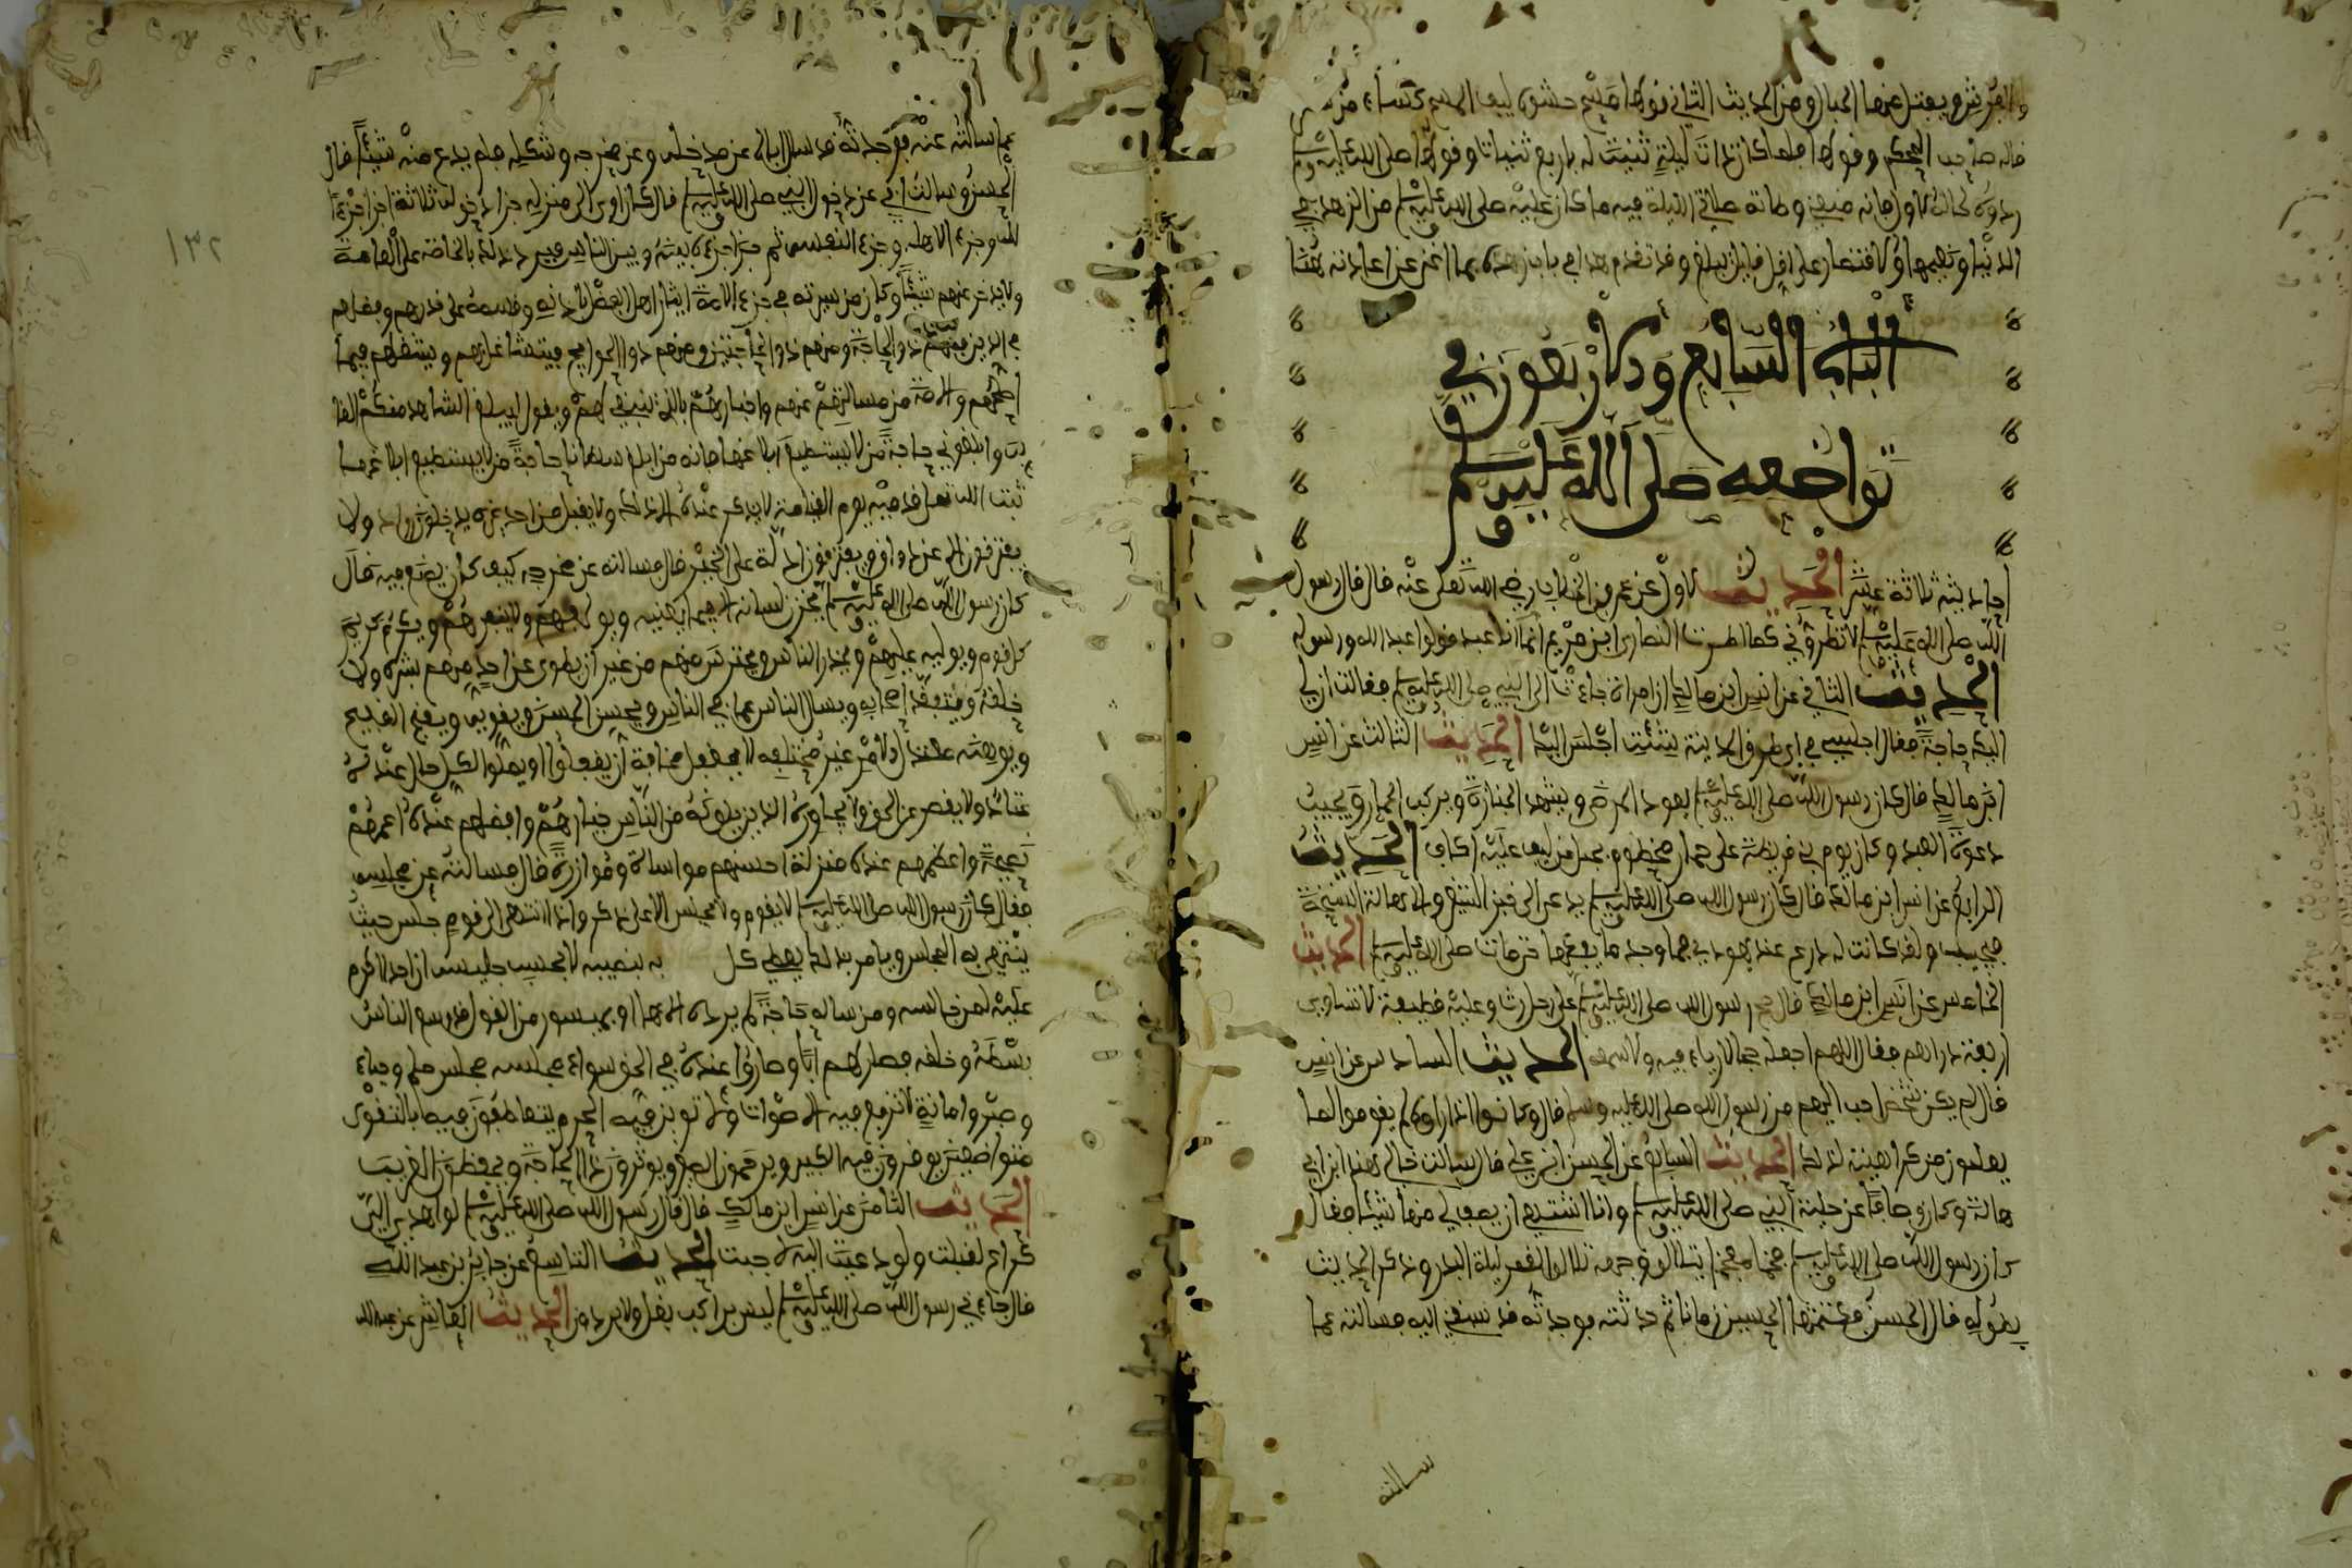 قاله صاحب المحكم وقولها فلما كان ذات ليلة ثنيت له باربع ثنيات وقوله صلى الله عليه وسلم
ردوه لحاله الاول فانه منعني وطاته صلاتي الليلة فيه ما كان عليه صلى الله عليه وسلم من الزهد في
الباب السابع وأربعون في
تواضعه صلى الله عليه وسلم
أحاديثه ثلاثة عشر الحديث الاول عن عمر بن الخطاب رضي الله تعالى عنه قال قال رسول
الله صلى الله عليه وسلم لا تطروني كما اطرت النصارى ابن مريم انما انا عبد فقولوا عبد الله ورسوله
الحديث الثاني عن انس ابن مالك ان امراة جاءت الى النبي صلى الله عليه وسلم فقالت ان لي
اليك حاجة فقال اجلسي في اي طرق المدينة شئت اجلس اليك الحديث الثالث عن انس
ابن مالك قال كان رسول الله صلى الله عليه وسلم يعود المرضى ويشهد الجنازة ويركب الحمار ويجيب
دعوة العبد وكان يوم بني قريظة على حمار مخطوم بحبل من ليف عليه اكاف الحديث
الرابع عن انس ابن مالك قال كان رسول الله صلى الله عليه وسلم يدعى الى خبز الشعير والاهالة السنخة
فيجيب ولقد كانت له درع عند يهودي فما وجد ما يفكها حتى مات صلى الله عليه وسلم الحديث
الخامس عن انس ابن مالك قال حج رسول الله صلى الله عليه وسلم على رحل رث وعليه قطيفة لا تساوي
اربعة دراهم فقال اللهم اجعله حجا لا رياء فيه ولا سمعة الحديث السادس عن انس
قال لم يكن شخص احب اليهم من رسول الله صلى الله عليه وسلم قال وكانوا اذا راوه لم يقوموا لما
يعلمون من كراهيته لذلك الحديث السابع عن الحسن ابن علي قال سالت خالي هند ابن ابي
هالة وكان وصافا عن حلية النبي صلى الله عليه وسلم وانا اشتهي ان يصف لي منها شيئا فقال
كان رسول الله صلى الله عليه وسلم فخما مفخما يتلالا وجهه تلالؤ القمر ليلة البدر وذكر الحديث
بطوله قال الحسن فكتمتها الحسين زمانا ثم حدثته فوجدته قد سبقني اليه فسالته عما
سالته
١٣٢
عما سالته عنه فوجدته قد سال اباه عن مدخله وعن مخرجه وشكله فلم يدع منه شيئا قال
الحسين وسالت ابي عن دخول النبي صلى الله عليه وسلم قال كان اذا اوى الى منزله جزا دخوله ثلاثة اجزاء جزءا
لله وجزءا لاهله وجزءا لنفسه ثم جزا جزءه بينه وبين الناس فيرد ذلك بالخاصة على العامة
ولا يدخر عنهم شيئا وكان من سيرته في جزء الامة ايثار اهل الفضل باذنه وقسمه على قدر فضلهم
في الدين فمنهم ذو الحاجة ومنهم ذو الحاجتين ومنهم ذوا الحوايج فيتشاغل بهم ويشغلهم فيما
اصلحهم والامة من مسالتهم عنهم واخبارهم بالذي ينبغي لهم ويقول ليبلغ الشاهد منكم الغا
يب وابلغوني حاجة من لا يستطيع ابلاغها فانه من ابلغ سلطانا حاجة من لا يستطيع ابلاغها
ثبت الله تعلى قدميه يوم القيامة لا يذكر عنده الا ذلك ولا يقبل من احد غيره يدخلون روادا ولا
يفترقون الا عن ذواق ويفترقون ادلة على الخير قال فسالته عن مخرجه كيف كان يصنع فيه قال
كان رسول الله صلى الله عليه وسلم يخزن لسانه الا فيما يعنيه ويولفهم ولا ينفرهم ويكرم كريم
كل قوم ويوليه عليهم ويحذر الناس ويحترس منهم من غير ان يطوي عن احد منهم بشره ولا
خلقه ويتفقد اصحابه ويسال الناس عما في الناس ويحسن الحسن ويقويه ويقبح القبيح
ويوهيه معتدل الامر غير مختلفه لا يغفل مخافة ان يغفلوا او يملوا لكل حال عنده
عتاد ولا يقصر عن الحق ولا يجاوزه الذين يلونه من الناس خيارهم وافضلهم عنده اعمهم
نصيحة واعظمهم عنده منزلة احسنهم مواساة ومؤازرة قال فسالته عن مجلسه
فقال كان رسول الله صلى الله عليه وسلم لا يقوم ولا يجلس الا على ذكر واذا انتهى الى قوم جلس حيث
ينتهي به المجلس ويامر بذلك يعطي كل به نصيبه لا يحسب جليسه ان احدا اكرم
عليه ممن جالسه ومن ساله حاجة لم يرده الا بها او بميسور من القول قد وسع الناس
بسطه وخلقه فصار لهم ابا وصاروا عنده في الحق سواء مجلسه مجلس حلم وحياء
وصبر وامانة لا ترفع فيه الاصوات ولا توبن فيه الحرم يتعاطفون فيه بالتقوى
متواضعين يوقرون فيه الكبير ويرحمون الصغير ويوثرون ذا الحاجة ويحفظون الغريب
الحديث الثامن عن انس ابن مالك قال قال رسول الله صلى الله عليه وسلم لو اهدي الي
كراع لقبلت ولو دعيت اليه لاجبت الحديث التاسع عن جابر بن عبد الله
قال جاءني رسول الله صلى الله عليه وسلم ليس براكب بغل ولا برذون الحديث العاشر عن عبد الله